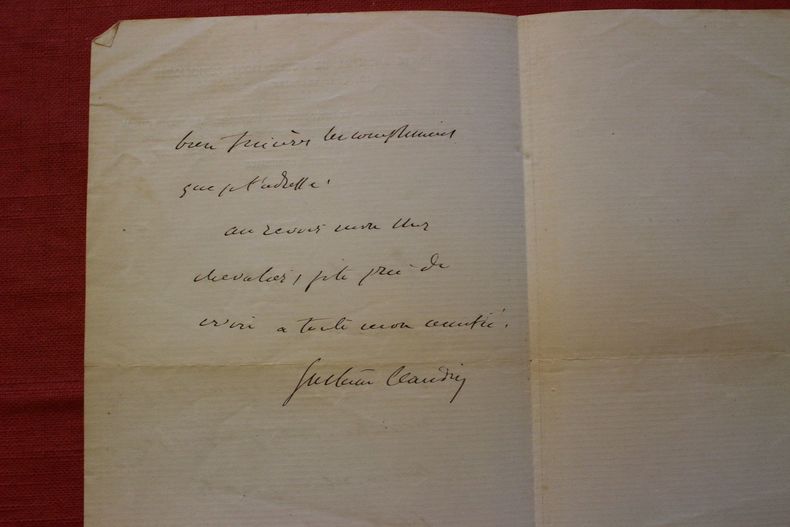 bien sincères les compliments
que je t'adresse.
au revoir mon cher
chevalier, je te prie de
croire a toute mon amitié.
Gustave Claudin